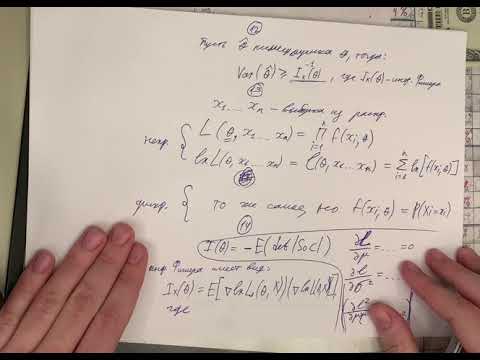 12
Пусть θ̂ несмещённая θ, тогда:
Var(θ̂) ≥ I_x^{-1}(θ), где I_x(θ) – инф. Фишера
13
x₁ ... xₙ – выборка из распр.
непр. { L(θ, x₁ ... xₙ) = ∏_{i=1}^{n} f(xᵢ, θ)
ln L(θ, x₁ ... xₙ) = ℓ(θ, x₁ ... xₙ) = ∑_{i=1}^{n} ln[f(xᵢ, θ)]
дискр. { то же самое, но f(xᵢ, θ) = P(Xᵢ = xᵢ)
14
I(θ) = -E(
∂ℓ/∂μ = ... = 0
инф Фишера имеет вид:
∂ℓ/∂σ² = ...
I_x(θ) = E[∇ ln L(θ, X)(∇ ln L(θ, X))
где